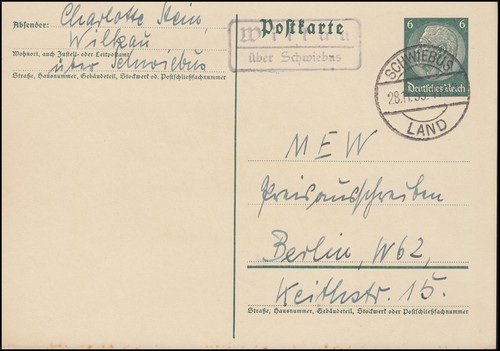 Absender: Charlotte Stein,
Wilkau
Wohnort, auch Zustell- oder Leitpostamt
über Schwiebus
Straße, Hausnummer, Gebäudeteil, Stockwerk od. Postschließfachnummer
Postkarte
über Schwiebus
6 6
Deutsches Reich
SCHWIEBUS
LAND
MEW
Preisausschreiben
Berlin, W62,
Keithstr. 15.
Straße, Hausnummer, Gebäudeteil, Stockwerk oder Postschließfachnummer